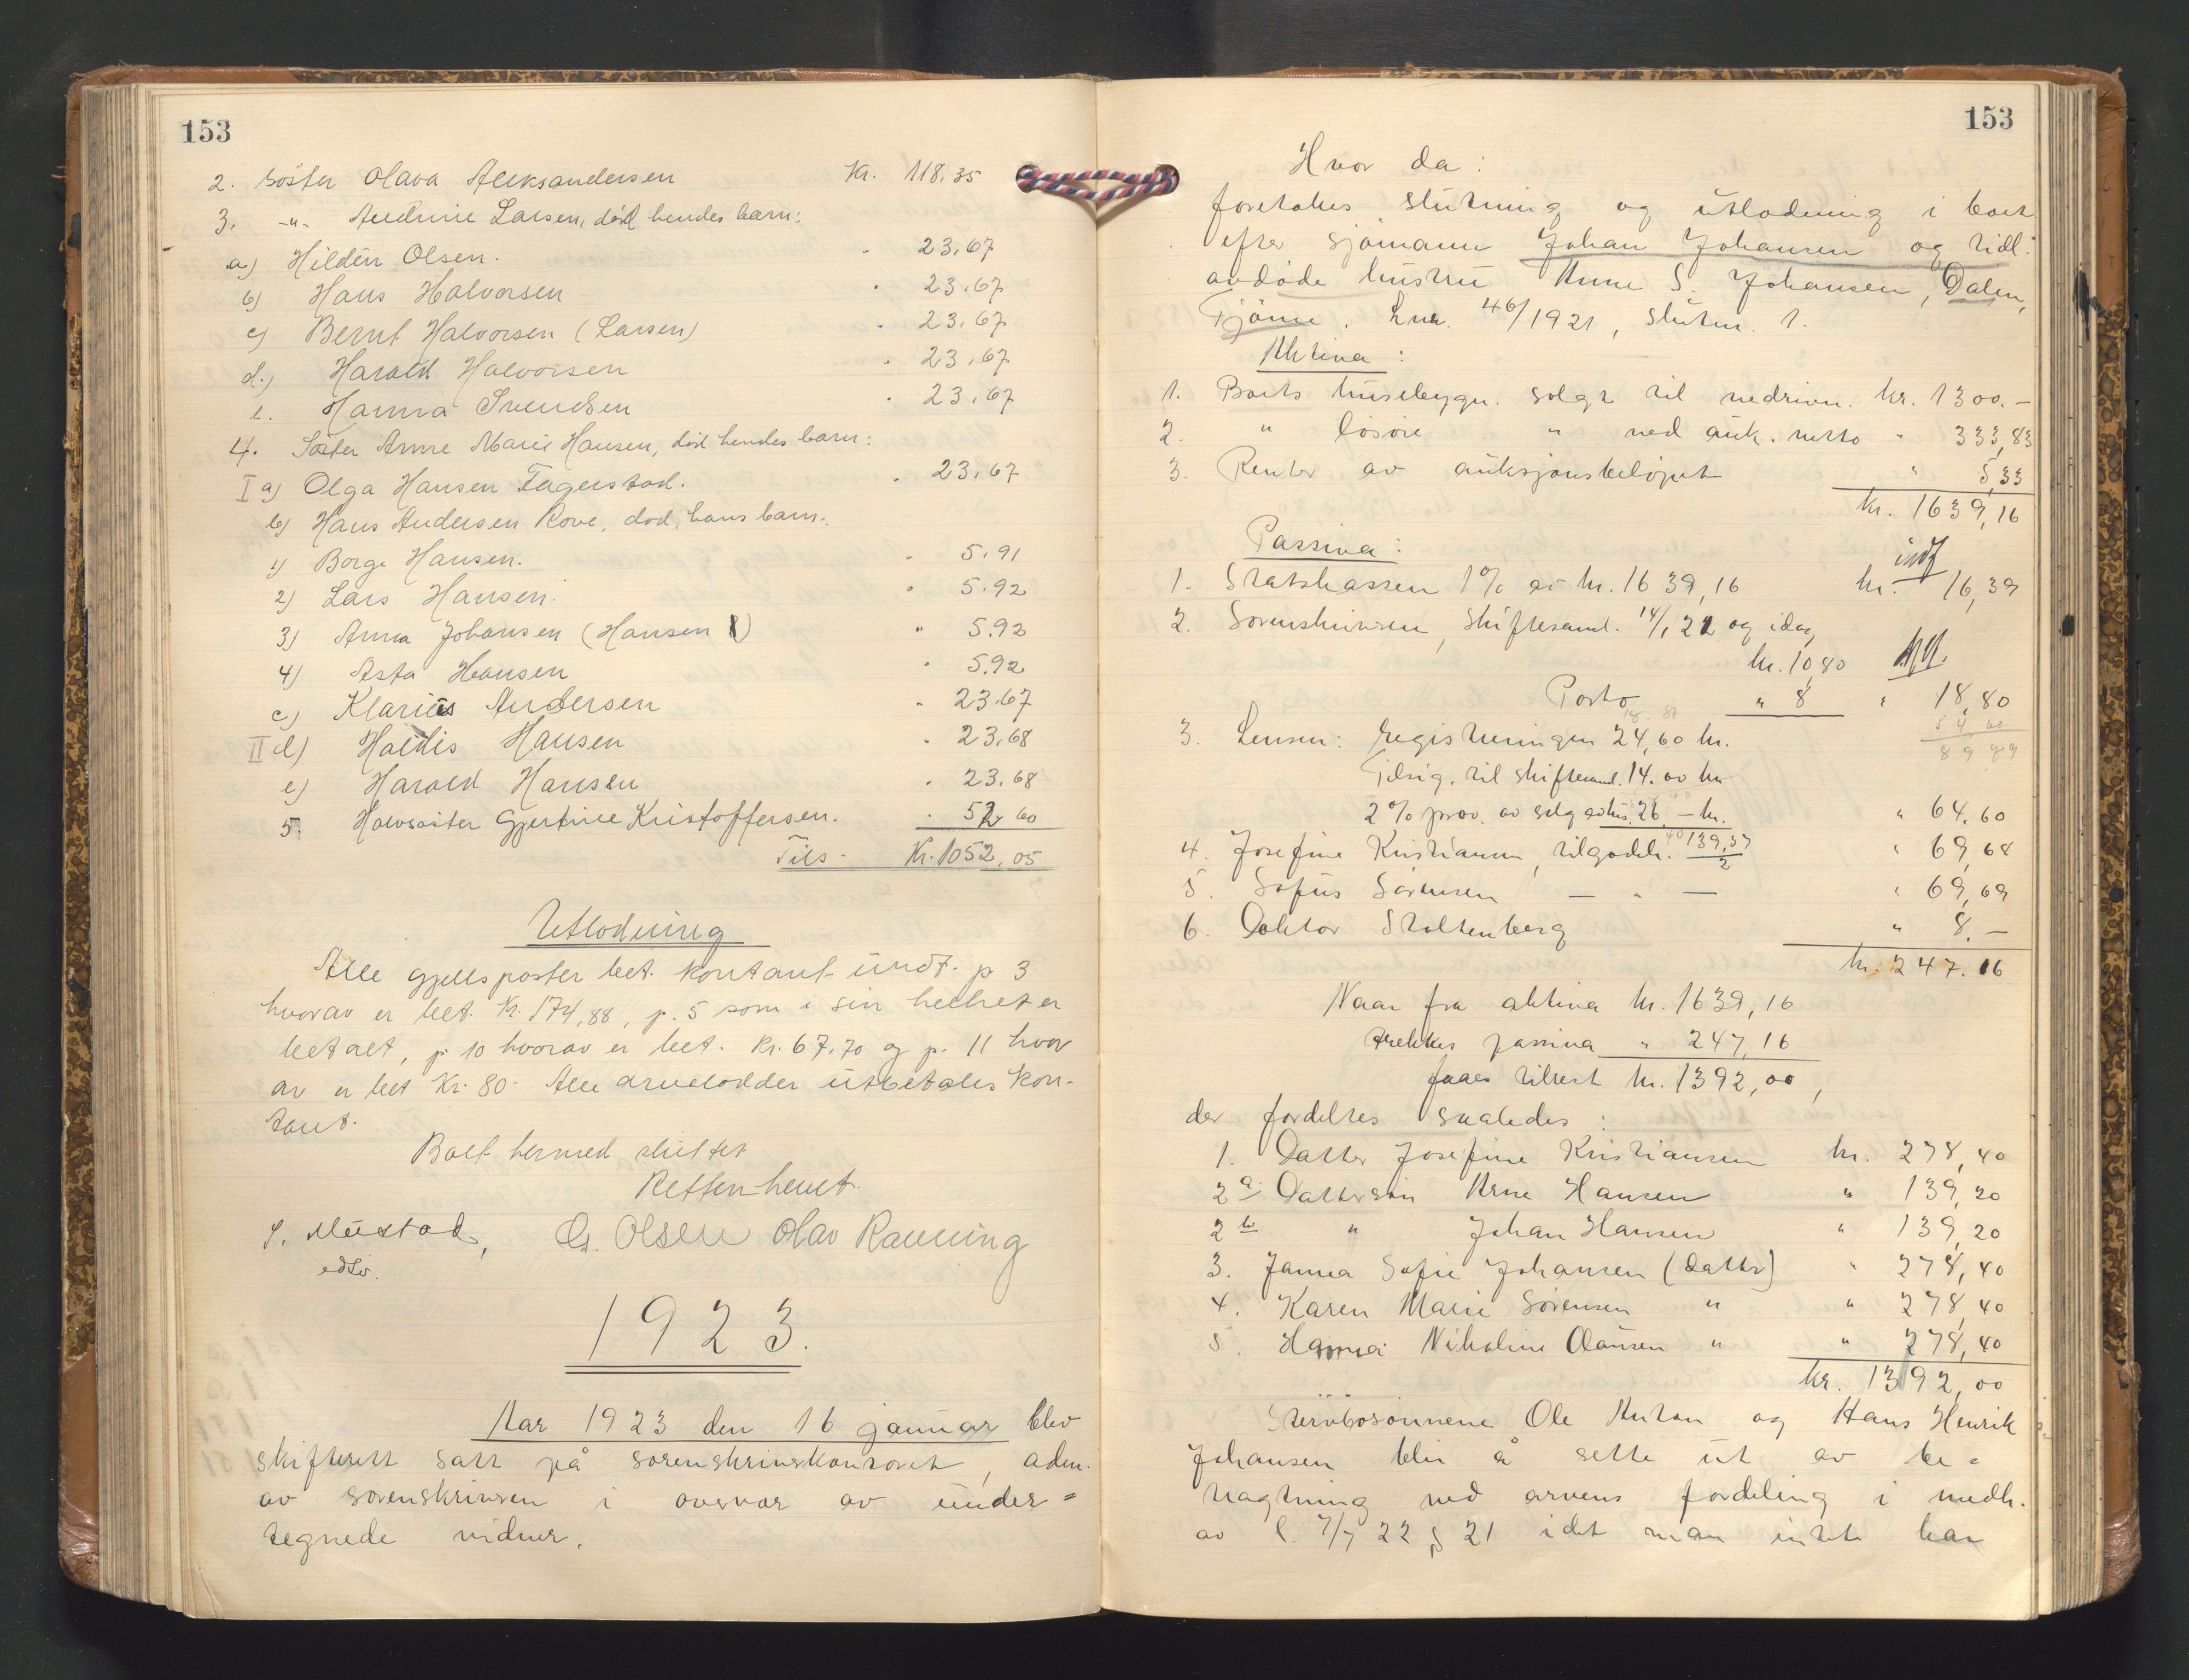 153
2. Söster Olava Aleksandersen Kr. 118.35
3. -"- Andrine Larsen, död hendes barn:
a) Hildén Olsen. . 23.67
b) Hans Halvorsen . 23.67
c) Bernt Halvorsen (Larsen) . 23.67
d.) Harald Halvorsen . 23.67
e. Hanna Svendsen . 23.67
4. Söster Anne Marie Hansen, död hendes barn:
I a) Olga Hansen Fagerstad. . 23.67
b) Hans Andersen Rove, död, hans barn.
1) Borge Hansen. . 5.91
2) Lars Hansen. . 5.92
3) Anna Johansen (Hansen) " 5.92
4) Asta Hansen . 5.92
c) Klarius Andersen . 23.67
II d) Haldis Hansen . 23.68
e) Harald Hansen . 23.68
5. Halvsöster Gjertine Kristoffersen. . 52,60
Tils. Kr. 1052,05
Utlodning
Alle gjeldsposter bet. kontant undt. p 3
hvorav er bet. Kr. 174,88, p. 5 som i sin helhet er
betalt, p 10 hvorav er bet. Kr. 67.70 og p. 11 hvor
av er bet Kr. 80.- Alle arvelodder utbetales kon-
tant.
Boet hermed sluttet
Retten hevet.
S. Mustad, G. Olsen Olav Ranning
edsv.
1923.
Aar 1923 den 16 januar blev
skifterett satt på sorenskriverkontoret, adm.
av sorenskriveren i overvær av under=
tegnede vidner.
153
Hvor da:
foretokes slutning og utlodning i boet
efter sjömann Johan Johansen og tidl.
avdöde hustru Anne S. Johansen, Dalen,
Tjöme. Lnr. 46/1921, slutn. 1.
Aktiva:
1. Boets husebygn. solgt til nedrivn. kr. 1300.-
2. " lösöre " ved auk. netto " 333,83
3. Renter av auksjonsbelöpet " 5,33
kr. 1639,16
Passiva:
indf
1. Statskassen 1% av kr. 1639,16 kr. 16,39
2. Sorenskriveren, skiftesaml. 14/1 22 og idag
kr. 10,80
Porto " 8 " 18,80
3. Lensm: registreringen 24,60 kr.
Tilsig. til skiftesaml. 14.00 kr
2% prov. av salg av hus. 26,- kr. " 64.60
4. Josefine Kristiansen, tilgodeh. 139,37/2 " 69,68
5. Sofus Sörensen — " — " 69,69
6. Doktor Stoltenberg " 8.-
kr. 247.16
Naar fra aktiva kr. 1639,16
trekkes passiva " 247,16
faaes tilrest kr. 1392,00,
der fordeltes saaledes:
1. Datter Josefine Kristiansen kr. 278,40
2a Dattersön Arne Hansen " 139,20
2b " Johan Hansen " 139,20
3. Janna Sofie Johansen (datter) " 278,40
4. Karen Marie Sörensen " " 278,40
5. Hanna Nikoline Clausen " " 278,40
kr. 1392,00
Stervbosönnene Ole Anton og Hans Henrik
Johansen blir å sette ut av be=
tragtning ved arvens fordeling i medh.
av l. 7/7 22 § 21 idet man intet har